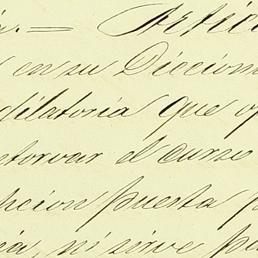 en su Diccion
dilatoria que op
torvar el curso
cion puesta p
ia, ni sirve pa